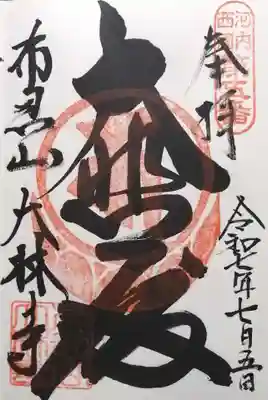 奉拝
河内
西国
大悲殿
令和七年七月五日
布忍山 大林寺